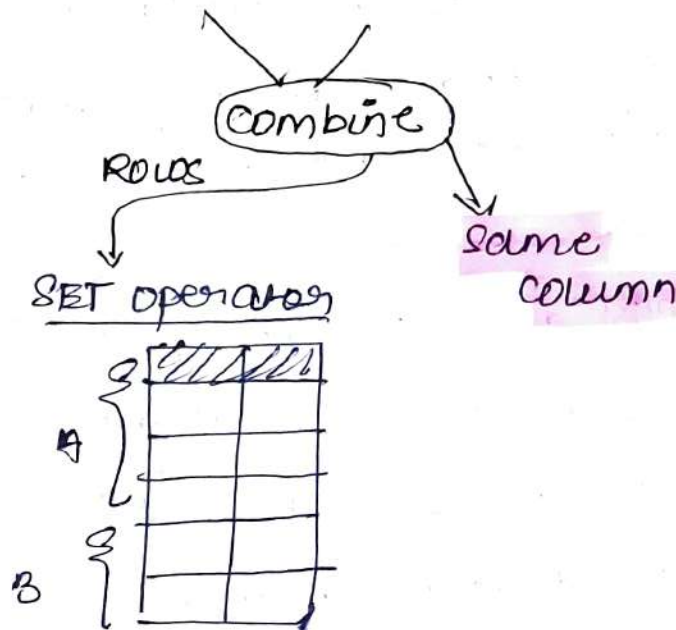 Combine
ROWS
Same
Column
SET operator
A
B